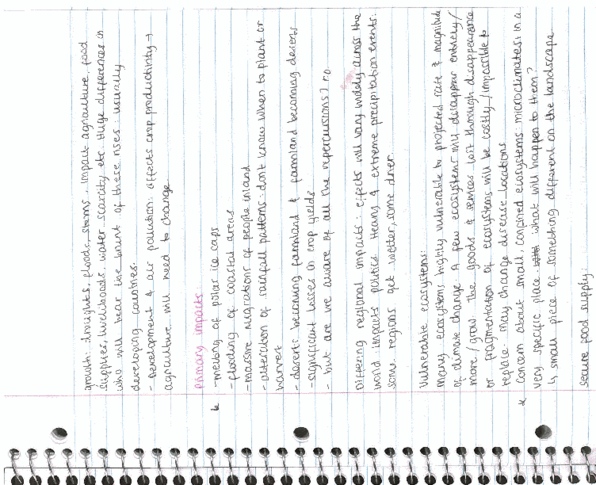 growth: droughts, floods, storms. impact agriculture, food
supplies, livelihoods, water scarcity etc. Huge differences in
who will bear the brunt of these rises: usually
developing countries.
- Development & air pollution: affects crop productivity →
agriculture will need to change
Primary impacts
- melting of polar ice caps
- flooding of coastal areas
- massive migrations of people inland
- alteration of rainfall patterns: don't know when to plant or
harvest
- deserts becoming farmland & farmland becoming deserts
- significant losses in crop yields
- but are we aware of all the repercussions? no
Differing regional impacts: effects will vary widely across the
world. impacts politics. Heavy & extreme precipitation events.
some regions get wetter, some drier.
Vulnerable ecosystems:
many ecosystems highly vulnerable to projected rate & magnitude
of climate change. A few ecosystems may disappear entirely/
move/grow. The goods & services lost through disappearance
or fragmentation of ecosystems will be costly/impossible to
replace. may change disease locations
* concern about small, confined ecosystems microclimates in a
very specific place. what will happen to them?
↳ small piece of something different on the landscape
secure food supply.